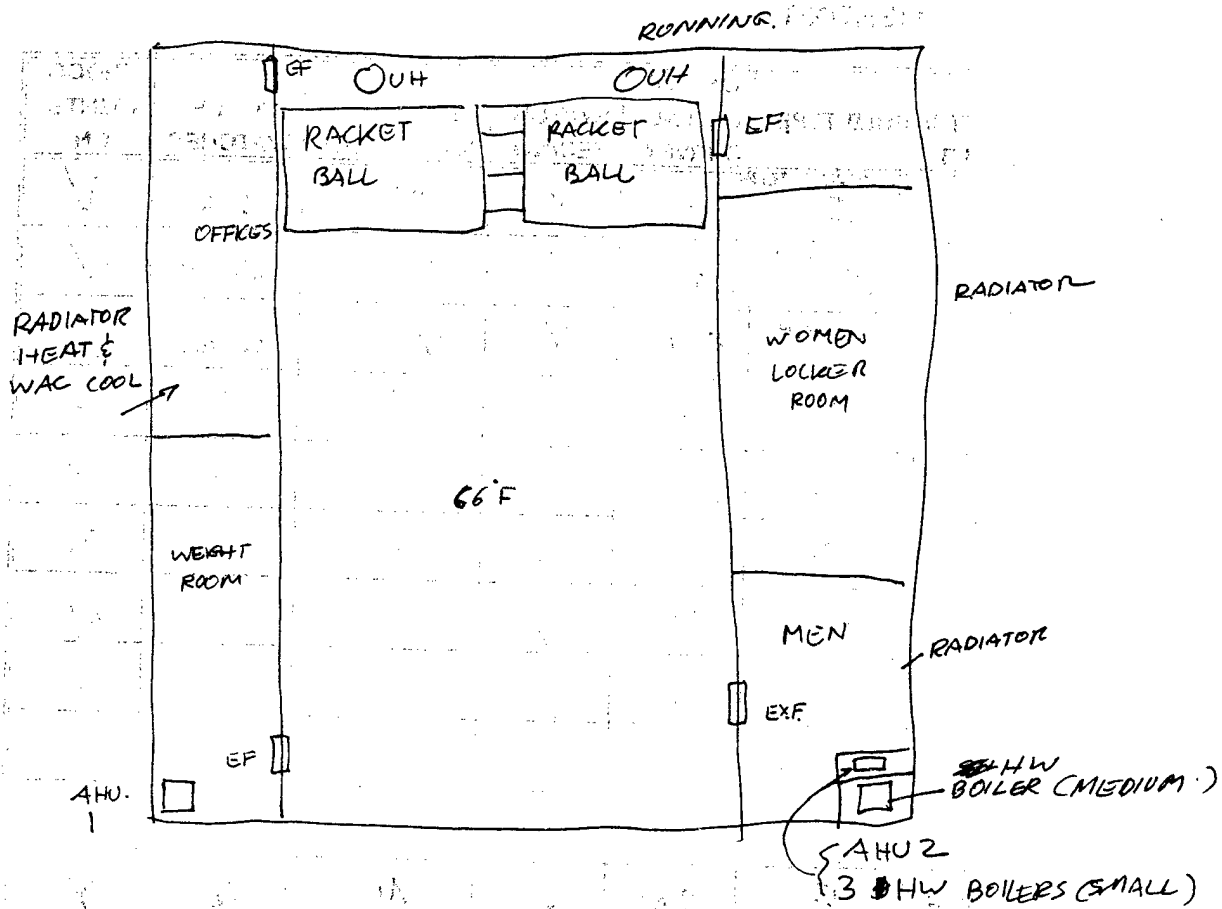 RUNNING.
EF
UH
UH
RACKET
BALL
RACKET
BALL
EF.
OFFICES
RADIATOR
HEAT &
WAC COOL
RADIATOR
WOMEN
LOCKER
ROOM
66°F
WEIGHT
ROOM
MEN
RADIATOR
EXF.
EF
AHU.
1
HW
BOILER (MEDIUM.)
AHU 2
3 HW BOILERS (SMALL)